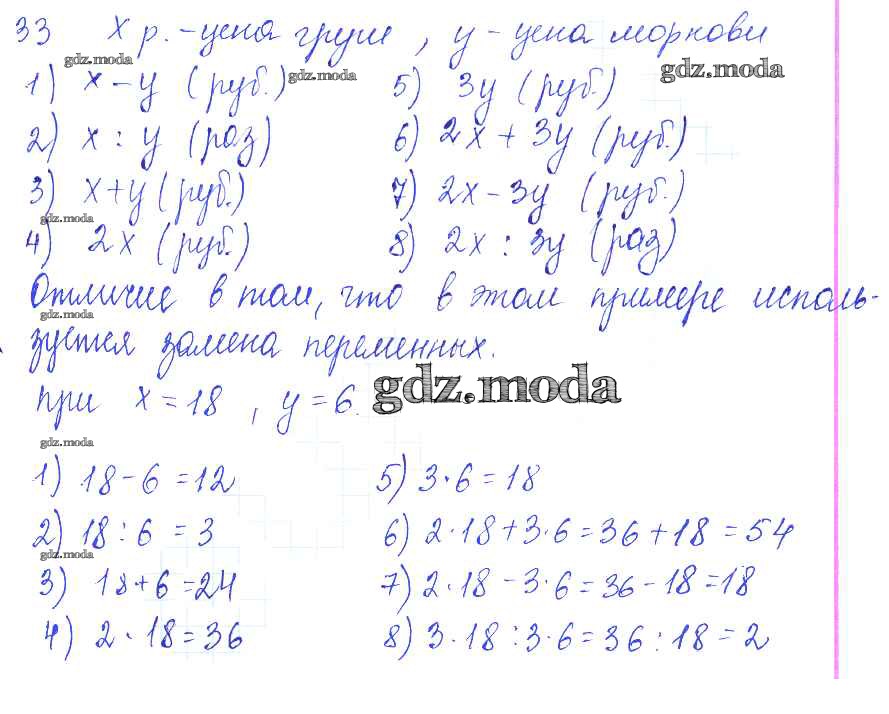 33 X р. - цена груш, y - цена моркови
gdz.moda gdz.moda gdz.moda
1) x - y (руб.) 5) 3y (руб.)
2) x : y (раз) 6) 2x + 3y (руб.)
3) x + y (руб.) 7) 2x - 3y (руб.)
gdz.moda
4) 2x (руб.) 8) 2x : 3y (раз)
Отличие в том, что в этом примере исполь-
gdz.moda
зуется замена переменных.
при x = 18, y = 6. gdz.moda
gdz.moda
1) 18 - 6 = 12 5) 3 · 6 = 18
2) 18 : 6 = 3 6) 2 · 18 + 3 · 6 = 36 + 18 = 54
gdz.moda
3) 18 + 6 = 24 7) 2 · 18 - 3 · 6 = 36 - 18 = 18
4) 2 · 18 = 36 8) 3 · 18 : 3 · 6 = 36 : 18 = 2